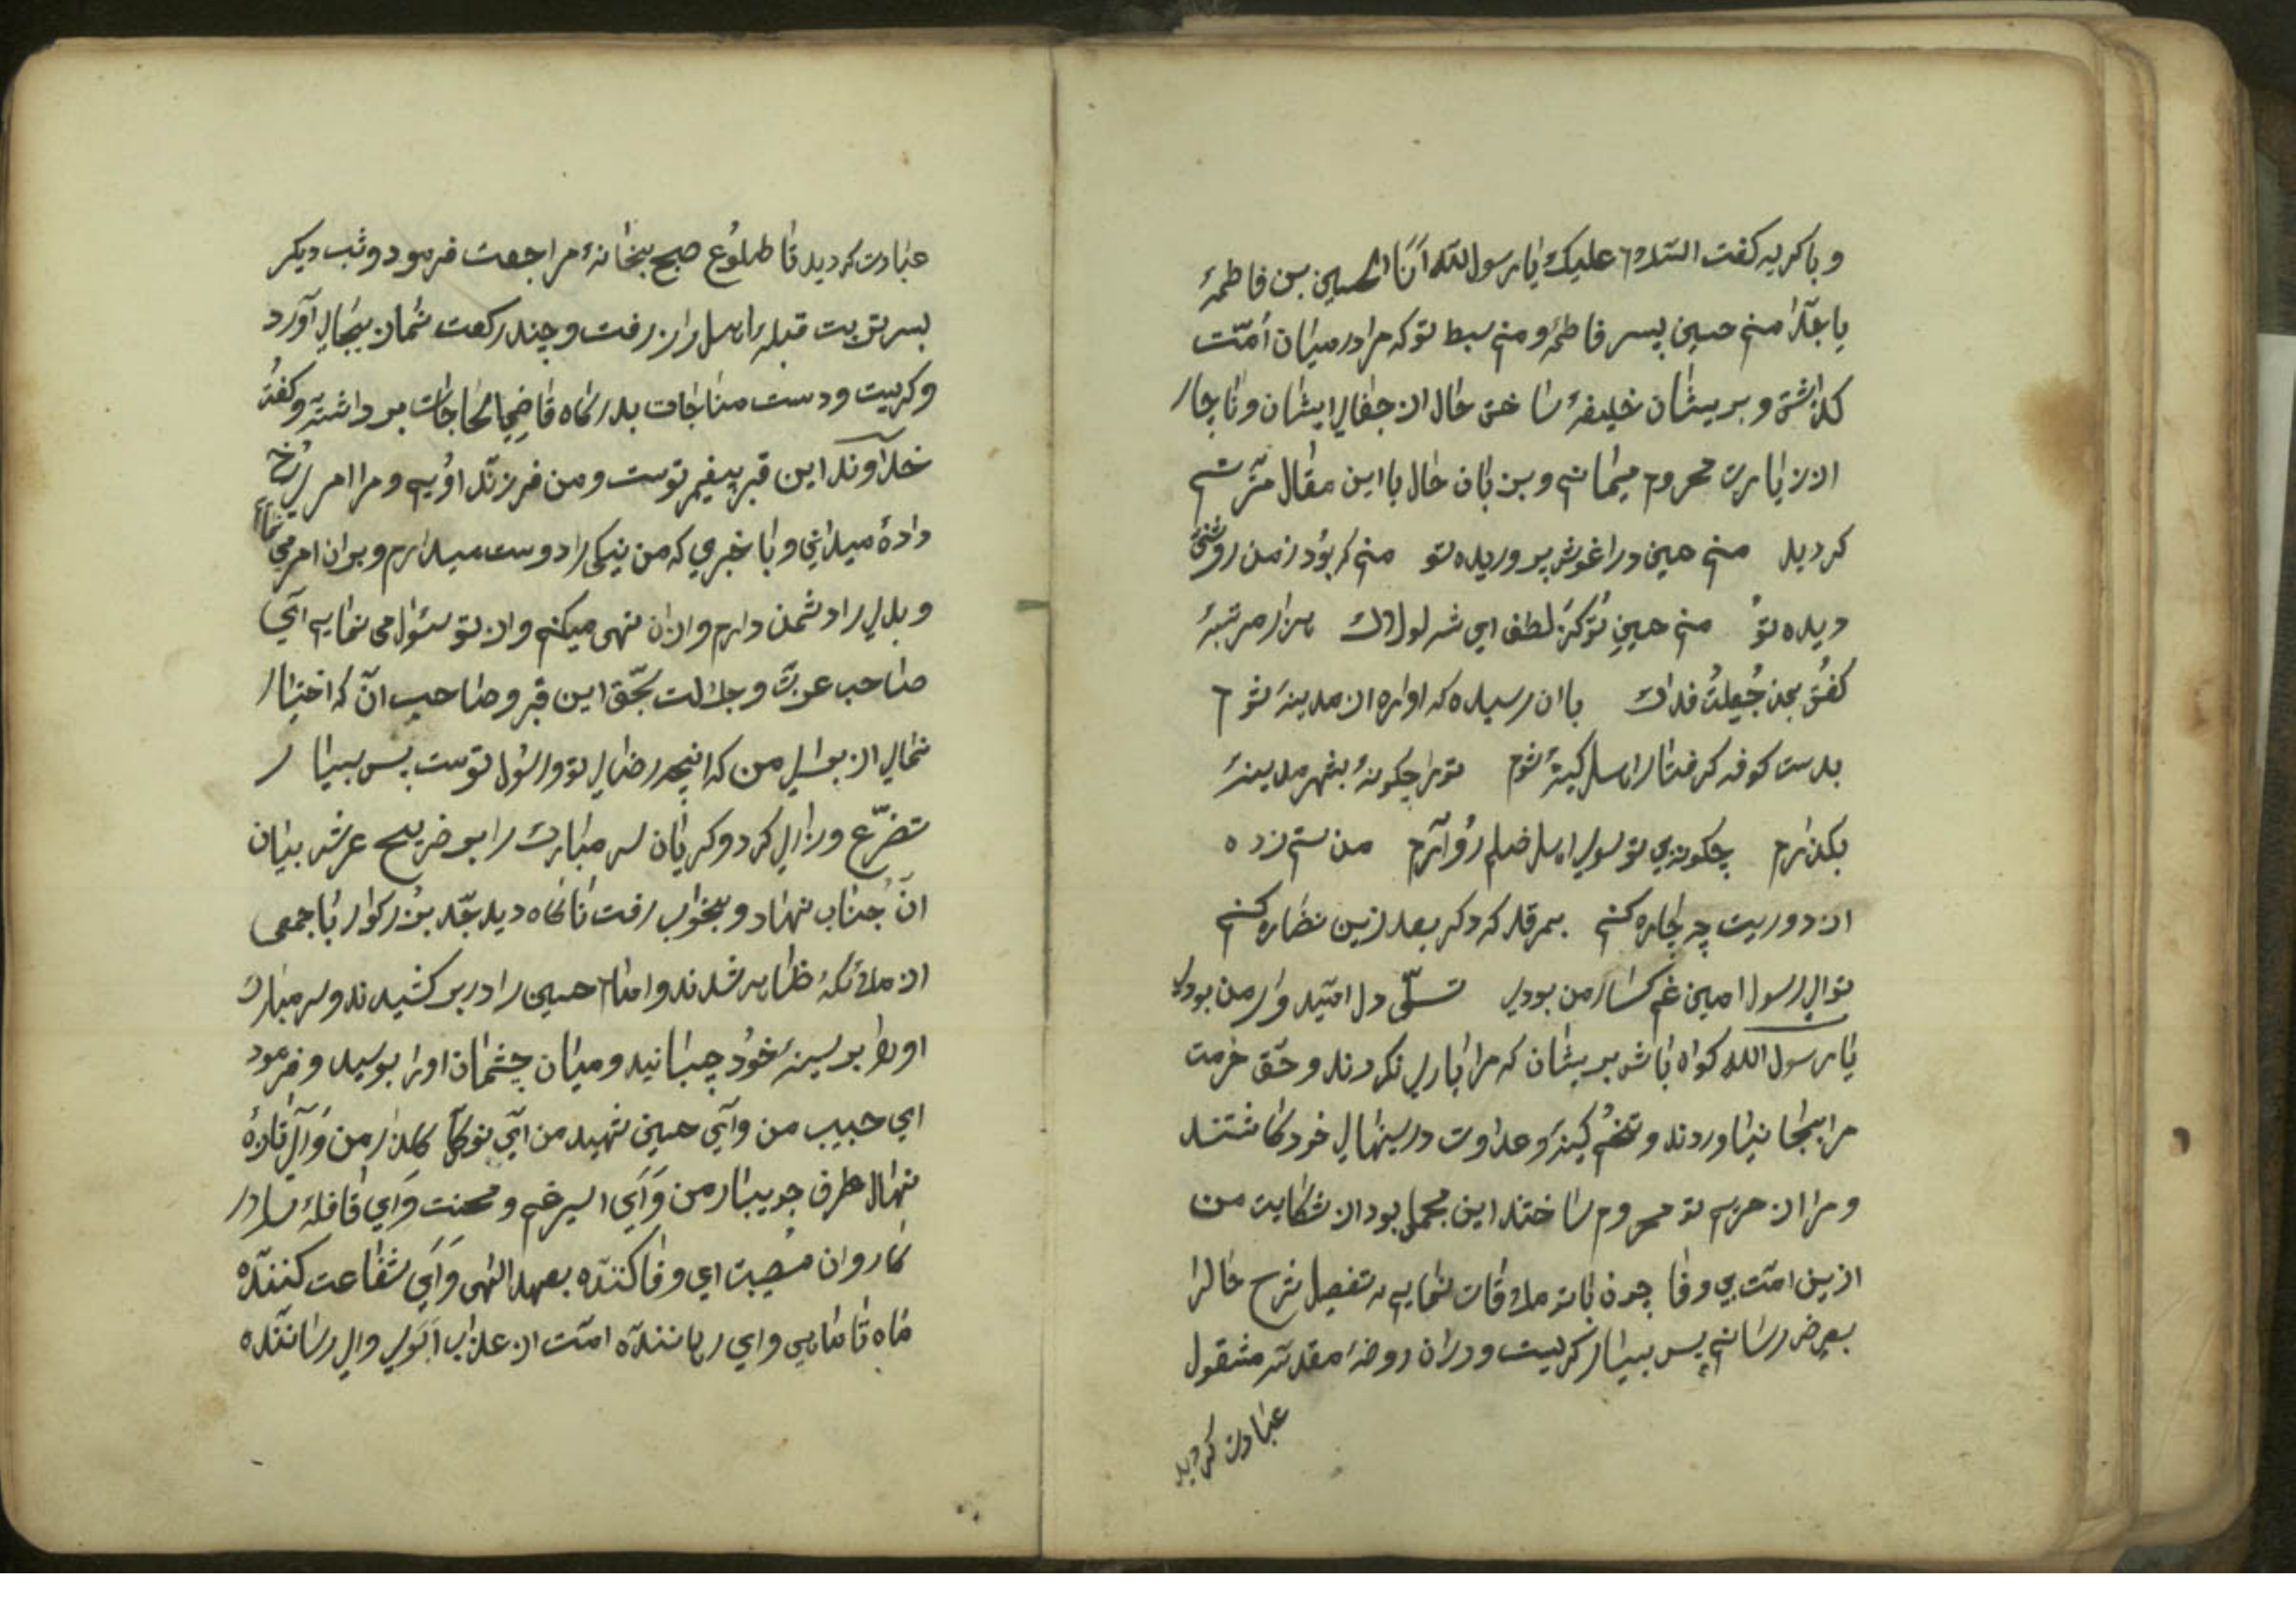 و با کریه کفت السلام علیک یا رسول الله اَنَا الحسین بن فاطمهٔ
یا جدّا منم حسین پسر فاطمهٔ و منم سبط تو که مرا در میان اُمّت
کذاشتی و بر یشان خلیفهٔ ساختی حال از جفای ایشان و ناچار
از زیارت محروم میمانم و بزبان حال با این مقال مترنم
کردید منم حسین در اغوش پروریده تو منم که بود ز من روشنی
دیده تو منم حسینِ تو کز لطف ای شه لولاک هزار مرتبهٔ
کفتی بمن جُعِلتُ فداک با ان رسیده که اواره از مدینهٔ شوم
بدست کوفه کرفتار اهل کینهٔ شوم تو را چکونهٔ بشهر مدینهٔ
بکذارم چکونه بی تو سوی اهل ظلم رُو آرم من ستم زده
از دوریت چه چاره کنم بمرقد که دکر بعد ازین نضاره کنم
تو ای رسول امین غم کسار من بودی تسلّی دل امّیدوار من بودی
یا رسول الله کواه باش بر یشان که مرا یاری نکردند و حقّ حرمت
مرا بیجا نیاوردند و تخم کینهٔ و عداوت در سینهای خود کاشتند
و مرا از حریم تو محروم ساختند این مجملی بود از شکایت من
ازین امّت بی وفا چون با تو ملاقات نمایم به تفصیل شرح حالرا
بعرض رسانم پس بسیار کریست و در ان روضهٔ مقدسه مشقول
عبادت کردید
عبادت کردید تا طلوُع صبح بیخانهٔ مراجعت فرمود و شب دیکر
بسر تربت قبلهٔ اهل راز رفت و چند رکعت نمان بیجای آورد
و کریست و دست مناجات بدرکاه قاضِیالحاجات برداشته و کفت
خداوند این قبر پیغمبر توست و من فرزند اویم و مرا امر رُخ
دادهٔ میدانی و با خبری که من نیکی را دوست میدارم و بر ان امر می نمایم
و بدی را دشمن دارم و از ان نهی میکنم و از تو سئوال می نمایم ای
صاحب عزت و جلالت بحّق این قبر و صاحب انّ که اختیار
نمای از برای من که انچه رضای تو و رسُول توست پس بسیار
تضرّع و زاری کرد و کریان سر مبارک را بر ضریح عرش بنیان
انّ جناب نهاد و بخواب رفت ناکاه دید جدّ بزُرکوار با جمعی
از ملائکهٔ ظاهر شدند و امام حسین را در بر کشیدند و سر مبارک
او را بر سینهٔ خوُد چسبانید و میان چشمان او را بوسید و فرمود
ای حبیب من وای حسین شهید من ای نوکل کلذار من وَ ای تازهٔ
نهال طرف جویبار من وَ ای اسیر غم و محنت وَ ای قافلهٔ سالار
کاروان مصُیبت ای وفا کننده بعهد الهی وَ ای شفاعت کننده
ماه تا ماهی وای رهاننده امّت از عذاب اَبَدی وای رساننده